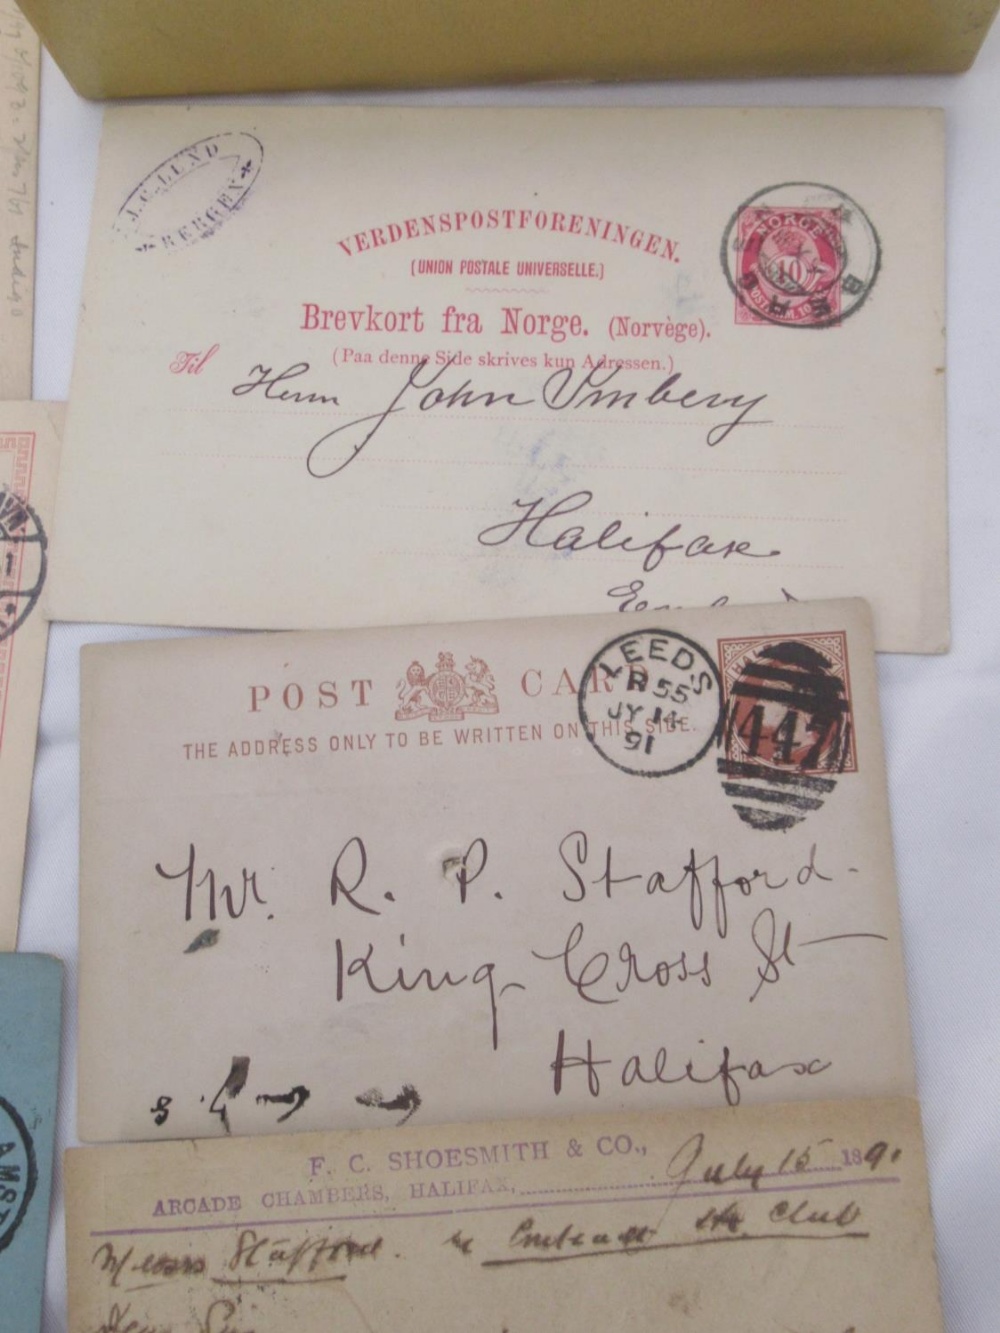 J. C. LUND
BERGEN
VERDENSPOSTFORENINGEN.
(UNION POSTALE UNIVERSELLE.)
Brevkort fra Norge. (Norvège).
(Paa denne Side skrives kun Adressen.)
Til
Herrn John Imbery
Halifax
NORGE
10
POST FRM. 10
POST CARD
THE ADDRESS ONLY TO BE WRITTEN ON THIS SIDE.
LEEDS
R 55
JY 14
91
447
HAL
Mr. R. P. Stafford.
King Cross St
Halifax
F. C. SHOESMITH & CO.,
ARCADE CHAMBERS, HALIFAX, July 15 1891
Messrs Stafford. Club
Dear Sir
AMST